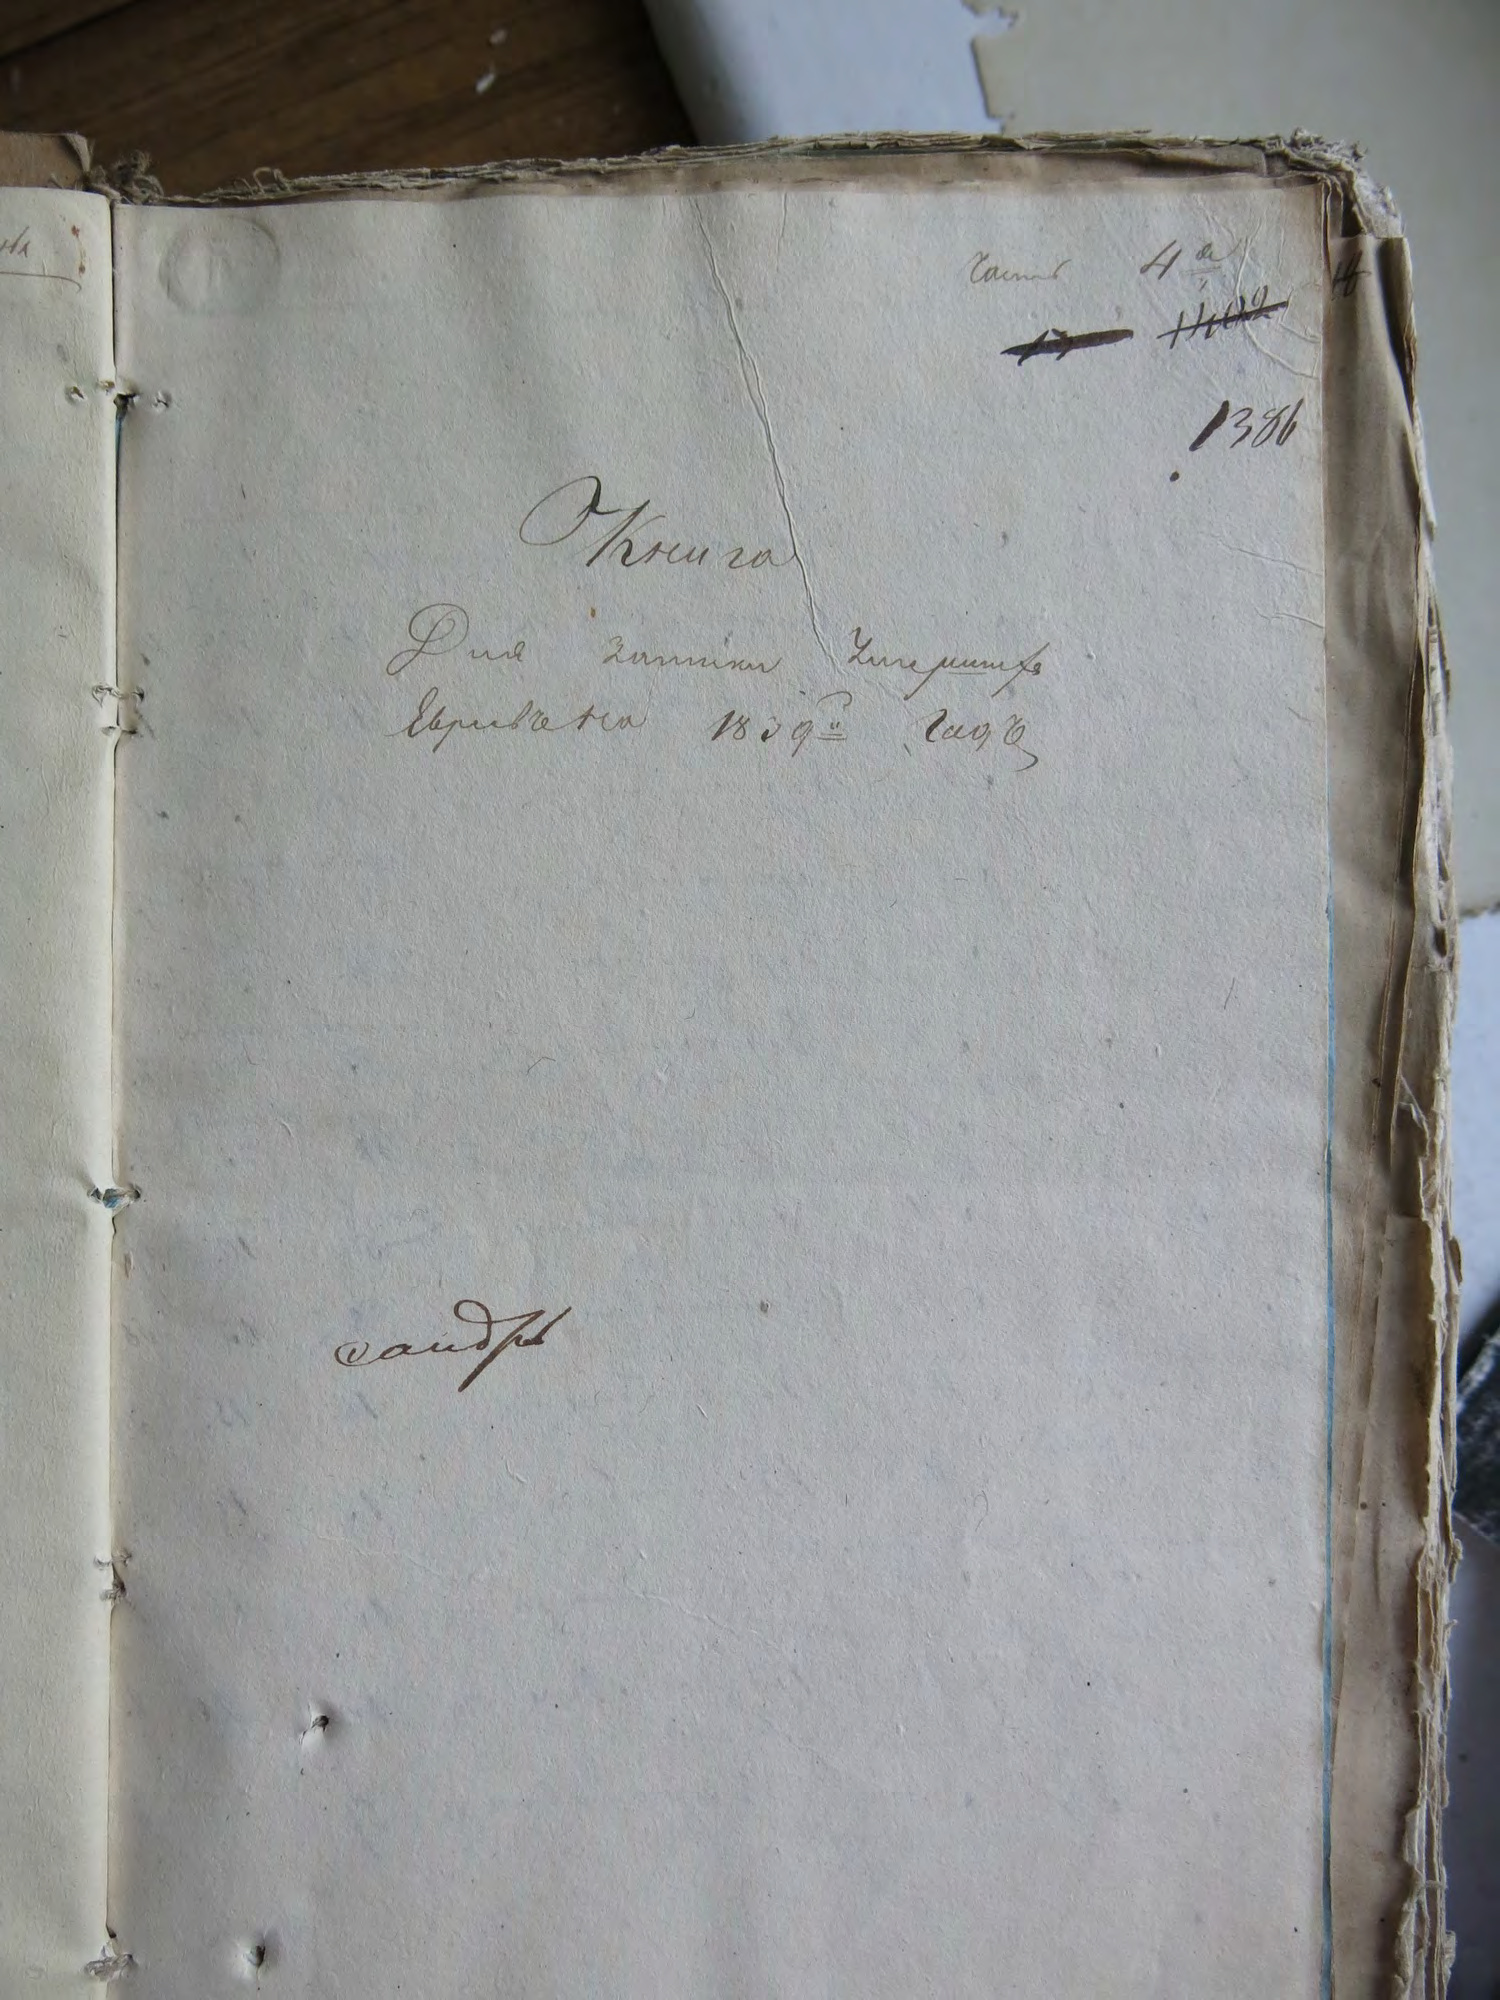 Часть 4я
1386
Книга
Для записки Умершихъ
Евреевъ на 1839й Годъ
сандръ